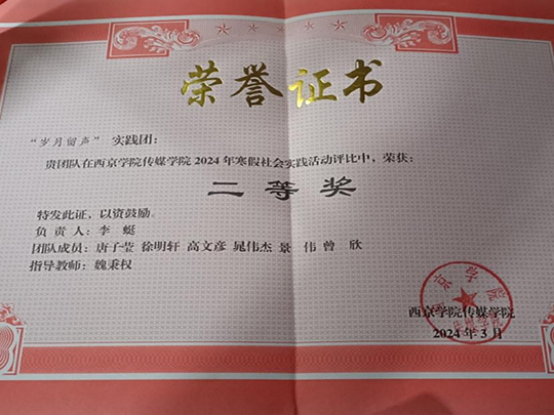 荣誉证书
“岁月留声”实践团：
贵团队在西京学院传媒学院 2024 年寒假社会实践活动评比中，荣获：
二等奖
特发此证，以资鼓励。
负责人：李 艇
团队成员：唐子莹 徐明轩 高文彦 晁伟杰 景 伟 曾 欣
指导教师：魏秉权
西京学院传媒学院
2024 年 3 月